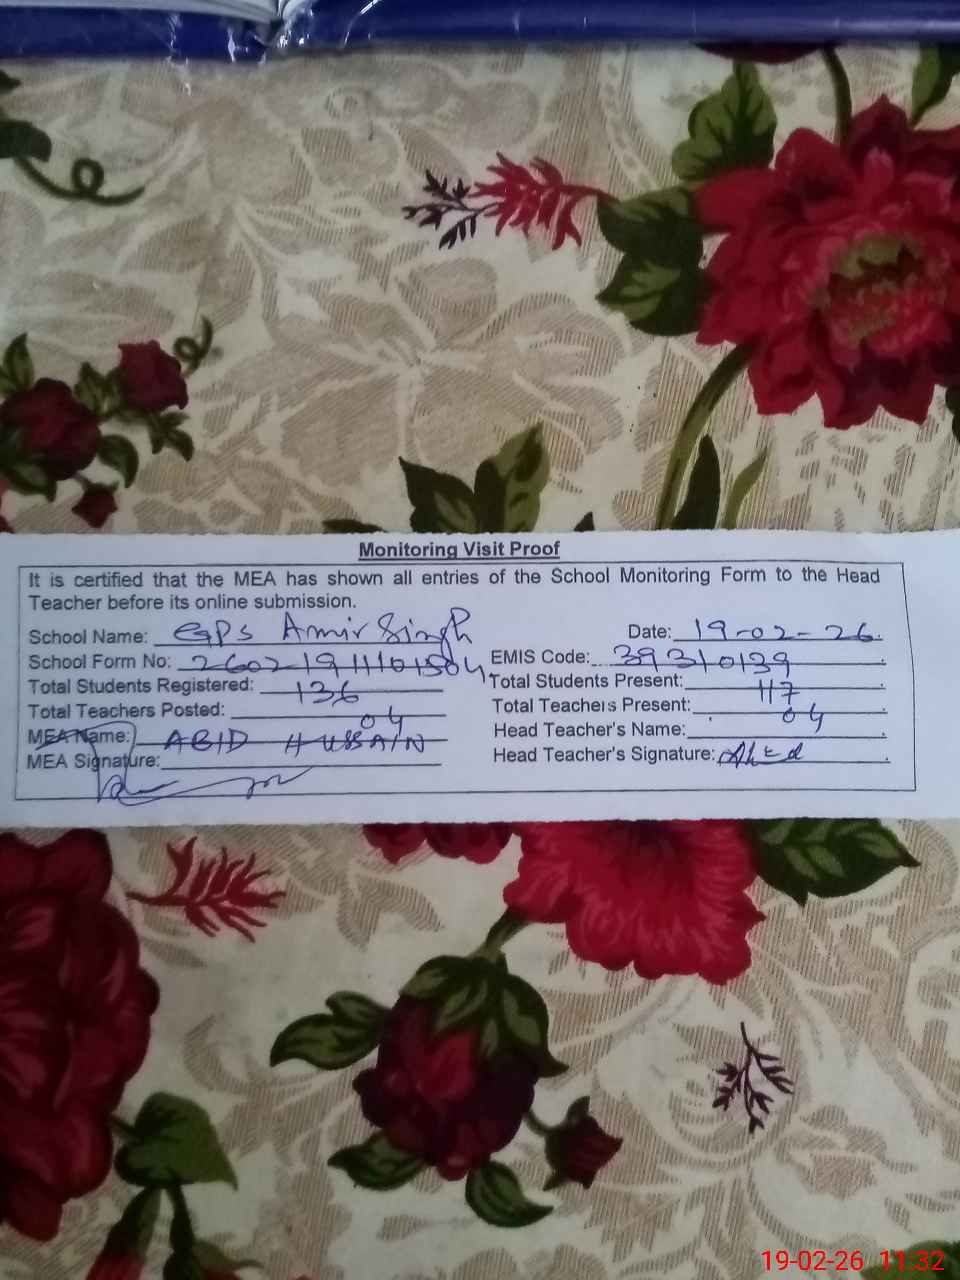 Monitoring Visit Proof
It is certified that the MEA has shown all entries of the School Monitoring Form to the Head
Teacher before its online submission.
School Name: GPS Amir Singh Date: 19-02-26.
School Form No: EMIS Code: 39310139.
Total Students Registered: 136 Total Students Present: 117.
Total Teachers Posted: 04 Total Teachers Present: 04.
MEA Name: ABID HUSSAIN Head Teacher's Name: .
MEA Signature: Head Teacher's Signature: .
19-02-26 11:32